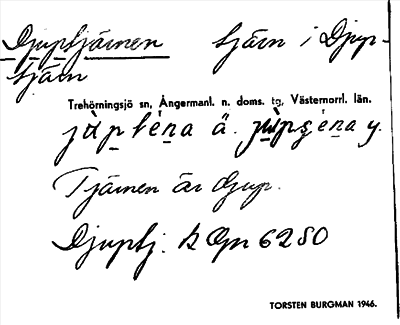 Djuptjärnen tjärn i Djup-
tjärn
Trehörningsjö sn, Ångermanl. n. doms. tg, Västernorrl. län.
jùptέna ä. jùpşέna y.
Tjärnen är djup.
Djuptj. k Gn 6280
TORSTEN BURGMAN 1946.